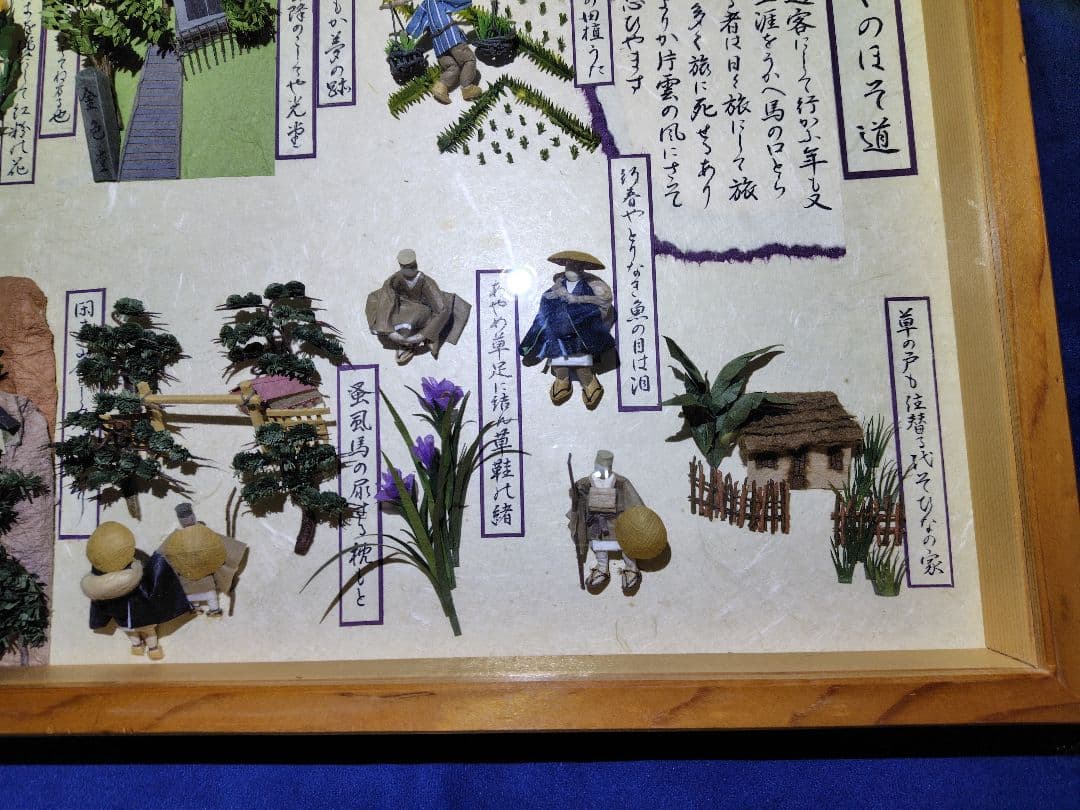 やのほそ道
過客にして行かふ年も又
生涯をうかへ馬の口とら
る者は日々旅にして旅
多く旅に死せるあり
よりか片雲の風にさそ
思ひやます
草の戸も住替る代そひなの家
行春やとりなき魚の目は泪
の田植うた
あやめ草足に結ん草鞋の緒
蚤虱馬の尿する枕もと
もか夢の跡
降のこしてや光堂
金色堂
閑
紅粉の花